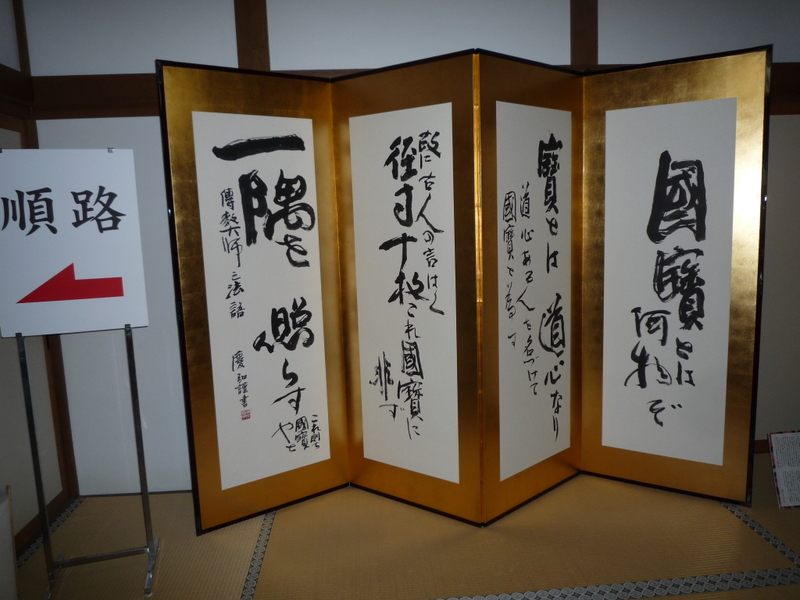 順路
國寶とは
何物ぞ
寶とは道心なり
道心ある人を名づけて
國寶と為す
故に古人の言はく
径寸十枚これ國寶に
非ず
一隅を照らす
これ則ち
國寶なりと
傳教大師之法語
謹書